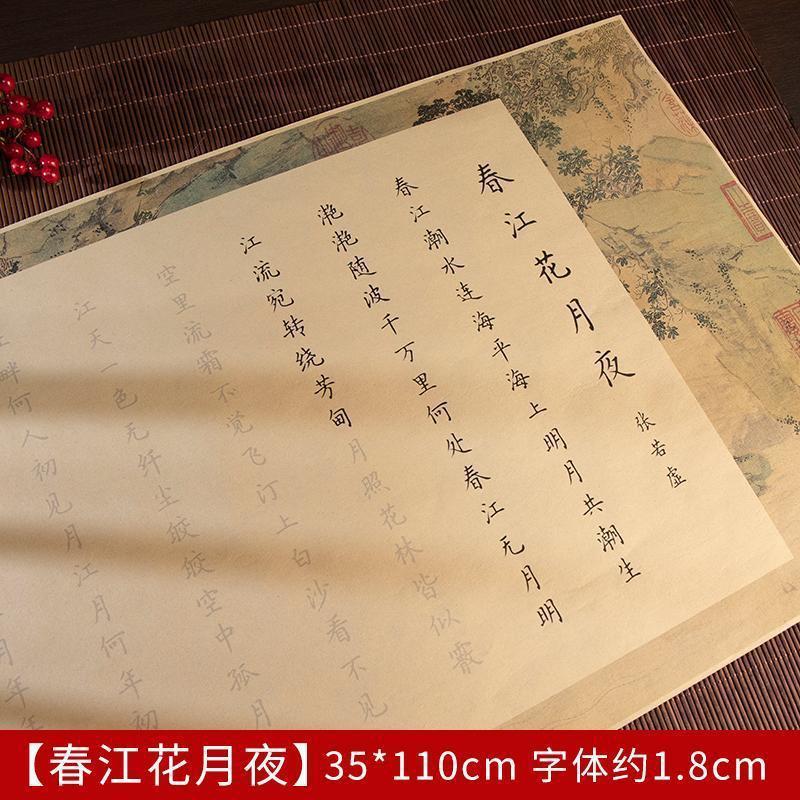 春江花月夜
张若虚
春江潮水连海平海上明月共潮生
滟滟随波千万里何处春江无月明
江流宛转绕芳甸月照花林皆似霰
空里流霜不觉飞汀上白沙看不见
江天一色无纤尘皎皎空中孤月
江畔何人初见月江月何年初
月年年
【春江花月夜】35*110cm 字体约1.8cm